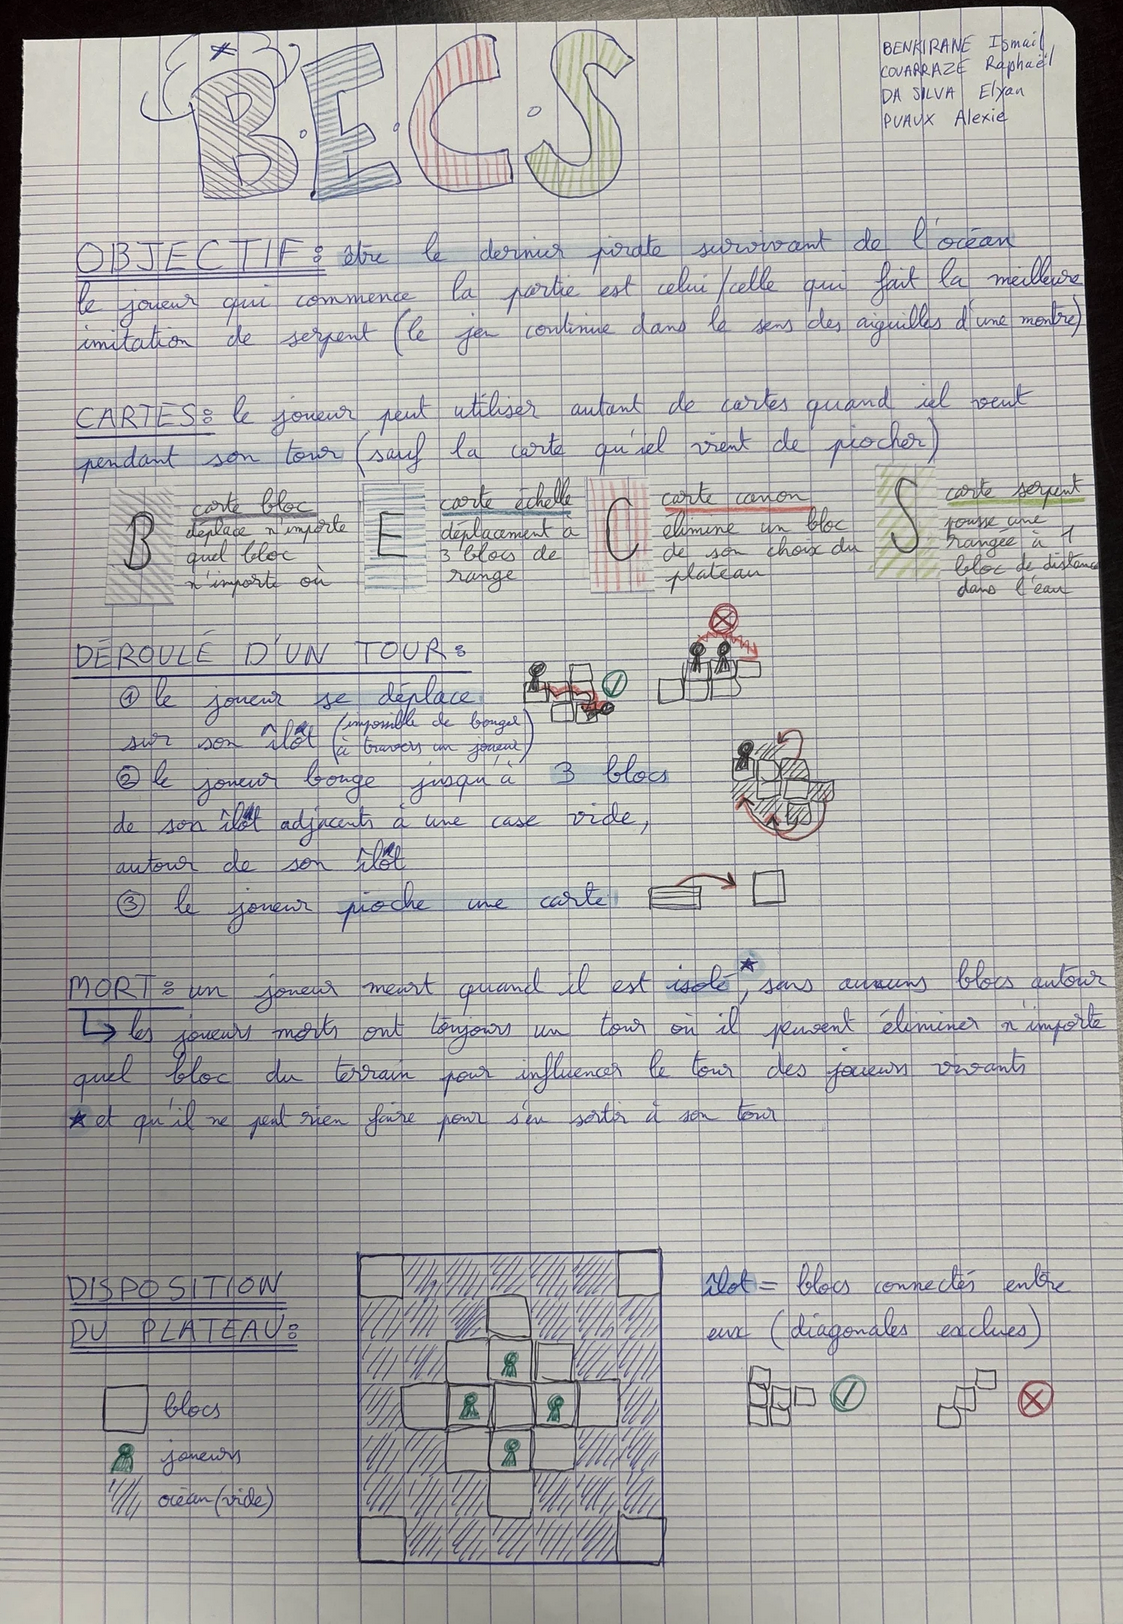 B.E.C.S
BENKIRANE Ismail
COUARRAZE Raphaël
DA SILVA Elyan
PUAUX Alexie
OBJECTIF : être le dernier pirate survivant de l'océan
le joueur qui commence la partie est celui/celle qui fait la meilleure
imitation de serpent (le jeu continue dans le sens des aiguilles d'une montre)
CARTES : le joueur peut utiliser autant de cartes quand iel veut
pendant son tour (sauf la carte qu'iel vient de piocher)
B
carte bloc
déplace n'importe
quel bloc
n'importe où
E
carte échelle
déplacement à
3 blocs de
range
C
carte canon
élimine un bloc
de son choix du
plateau
S
carte serpent
pousse une
rangée à 1
bloc de distance
dans l'eau
DÉROULÉ D'UN TOUR :
① le joueur se déplace
sur son îlot (impossible de bouger
à travers un joueur)
② le joueur bouge jusqu'à 3 blocs
de son îlot adjacents à une case vide,
autour de son îlot
③ le joueur pioche une carte
MORT : un joueur meurt quand il est isolé*, sans aucuns blocs autour
↳ les joueurs morts ont toujours un tour où il peuvent éliminer n'importe
quel bloc du terrain pour influencer le tour des joueurs vivants
* et qu'il ne peut rien faire pour s'en sortir à son tour
DISPOSITION
DU PLATEAU :
blocs
joueurs
océan (vide)
îlot = blocs connectés entre
eux (diagonales exclues)